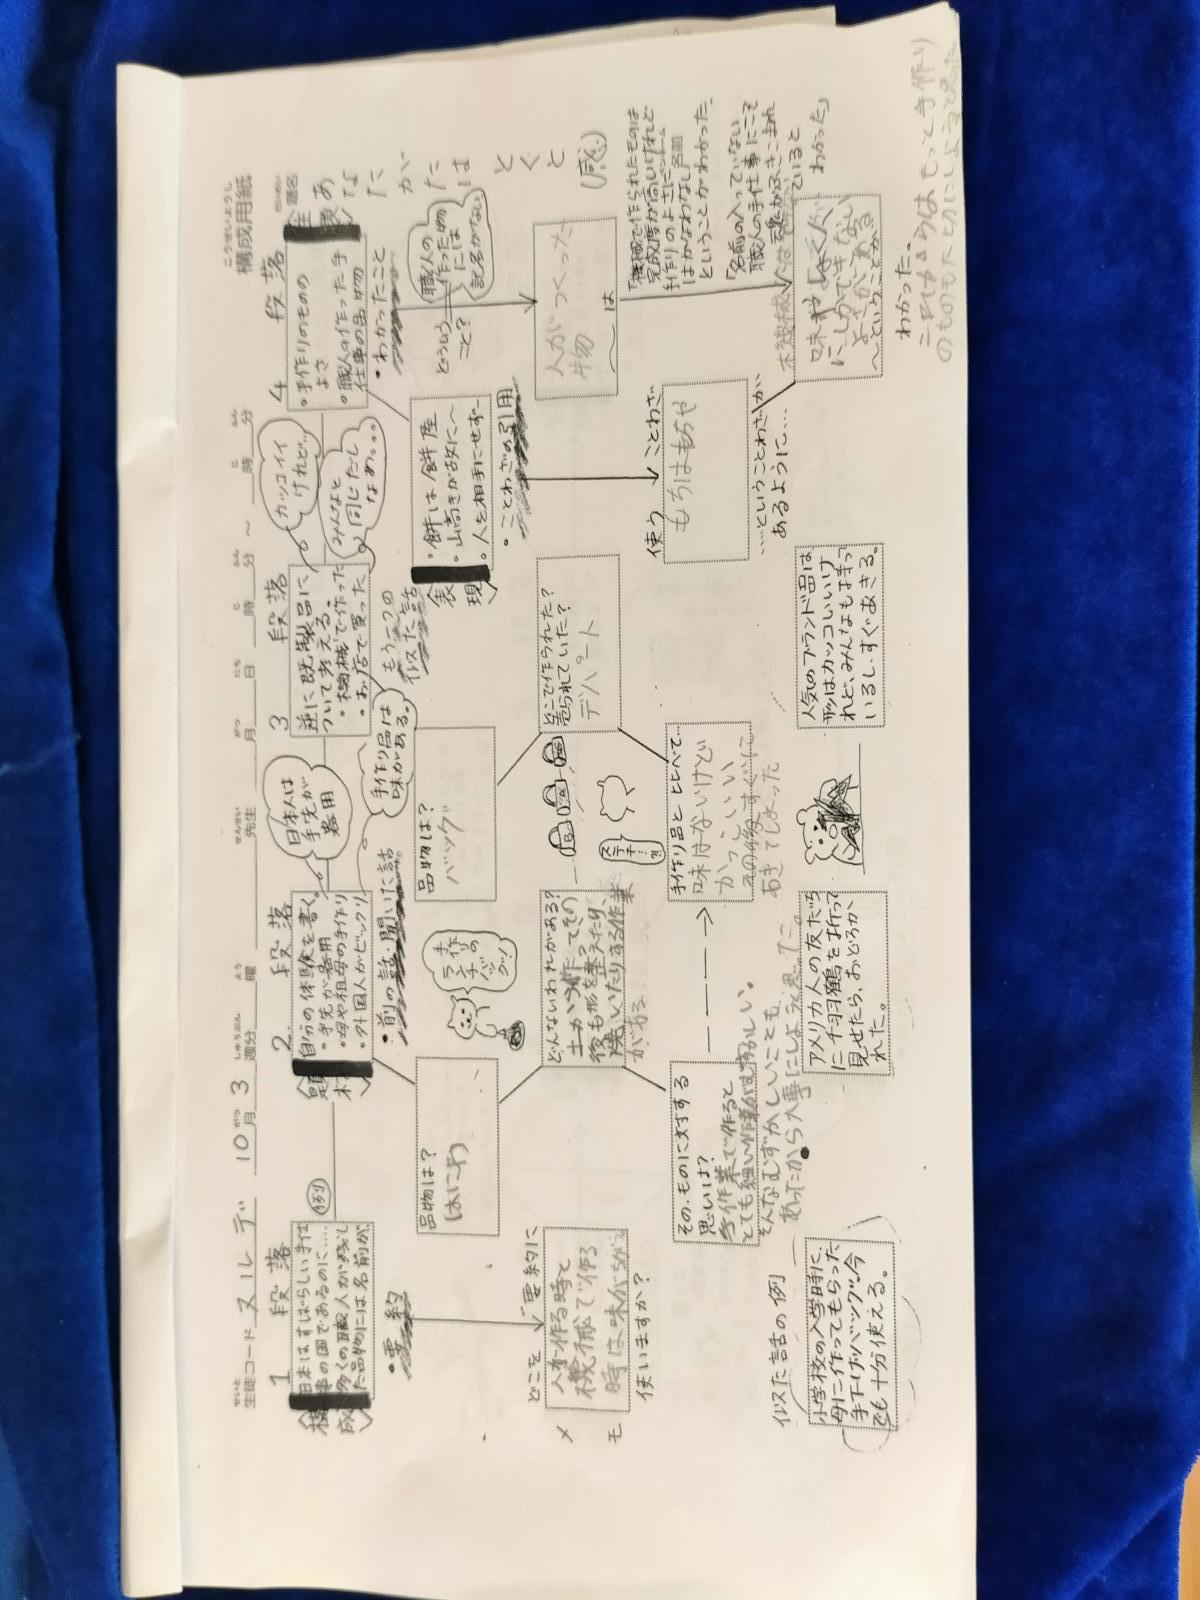 こうせいようし
構成用紙
せいと
生徒コード スルデ 10月 3週分 曜 先生 月 日 時 分 ~ 時 分
1段落
日本はすばらしい手仕
事の国であるのに…
多くの職人が残し
た品物には名前が
構成
例
・要約
どこを
要約に
人が作る時と
機械で作る
時は味がちがう
使いますか?
メモ
2段落
題材
自分の体験を書く。
・手先が器用
・母や祖母の手作り
・外国人がビックリ
日本人は
手先が
器用
手作り品は
味がある。
・前の話・聞いた話
品物は?
はにわ
手作り
ランチ
バッグ!
どんないわれがある?
土から作ってその
後も形を整えたり、
焼いたりする作業
がある
その、ものに対する
思いは?
手作業で作ると
とても細い作業がむずかしい。
そんなむずかしいことも
あったから大事にしようと思った。
似た話の例
小学校の入学時に、
母に作ってもらった
手下げバッグ。今
でも十分使える。
アメリカ人の友だち
に千羽鶴を折って
見せたら、おどろか
れた。
3段落
逆に既製品に
ついて考える。
・機械で作った
・お店で買った
カッコイイ
けれど…
みんなと
同じだし
なぁ。。。
もう一つの
似た話
品物は?
バッグ
どこで作られた?
売られていた?
デパート
ステキ…!?
手作り品とくらべて…
味はないけど
かっこいい
その後すぐに
あきてしまった
人気のブランド品は
形はカッコいいけ
れど、みんなもまっ
いるし、すぐあきる。
表現
・餅は餅屋
・山高きが故に〜
・人を相手にせず〜
・ことわざの引用
使う
ことわざ
もちはもちや
…ということわざが
あるように…
4段落
・手作りのものの
よさ
・職人の作った手
仕事の品物
だいめい
題名
あなたがたは
とくと
(感)
・わかったこと
職人の
作った物
には
記名がない
どういう
こと?
人がつくった
物
〜は
「機械で作られたものは
完成度が高いけれど
手作りのよさにはかなわない
ということがわかった。
「名前の入っていない
職人の手仕事にこそ
魂がふきこまれ
ていると
わかった」
味やよさが人
にしかできない
よさがある
〜ということが
わかった。
これからはもっと手作り
のものも大切にしようと思った